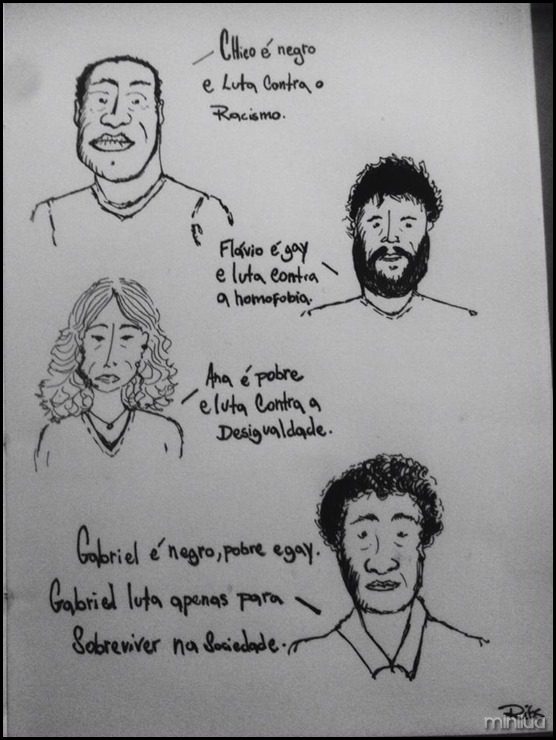 Chico é negro
e Luta Contra o
Racismo.
Flávio é gay
e luta contra
a homofobia.
Ana é pobre
e luta contra a
Desigualdade.
Gabriel é negro, pobre e gay.
Gabriel luta apenas para
Sobreviver na Sociedade.
miniiua